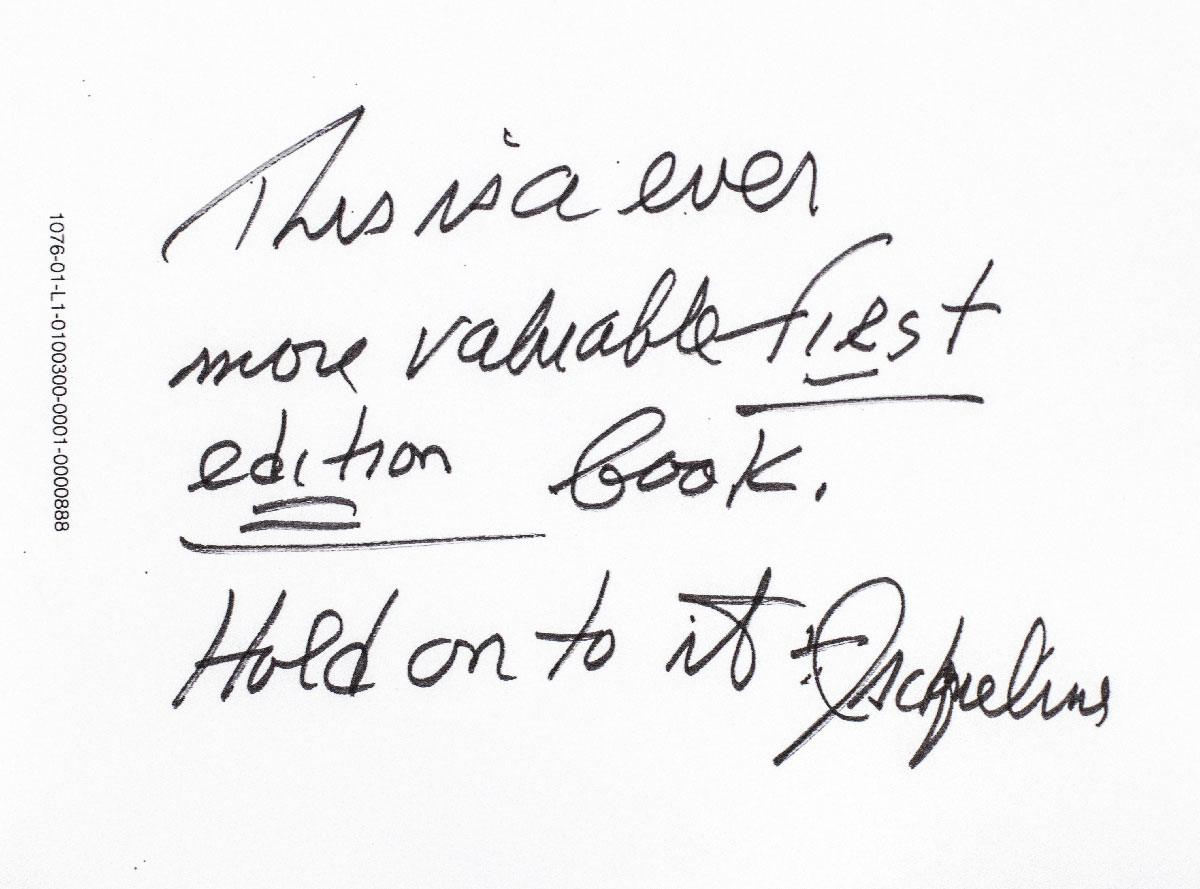 This is a ever
more valuable first
edition book.
Hold on to it Jacqueline
1076-01-L1-0100300-0001-0000888